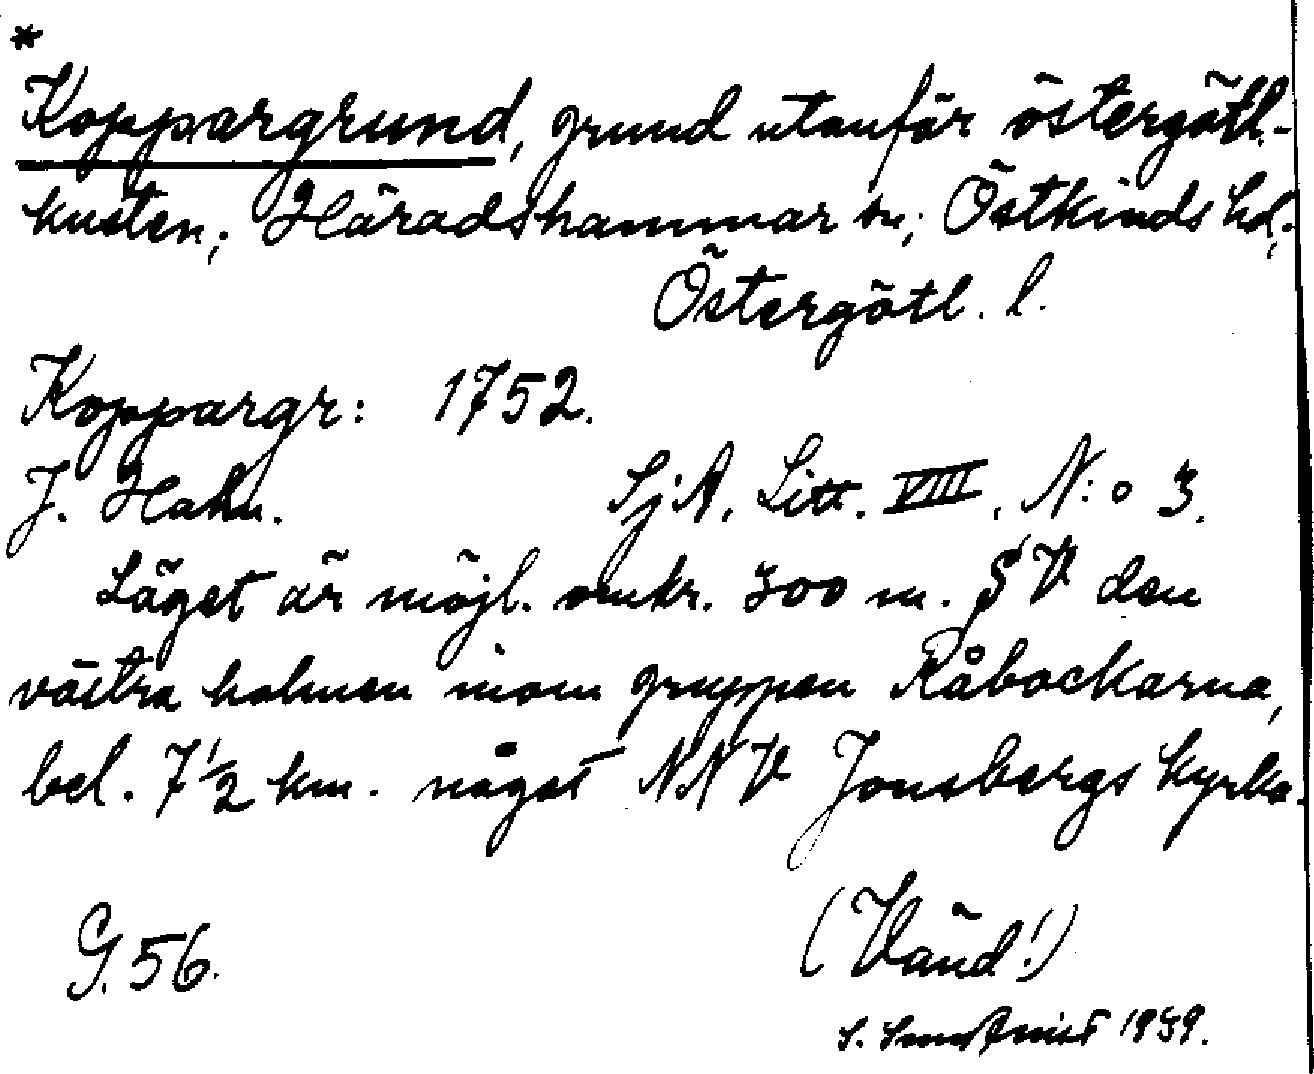 *
Koppargrund, grund utanför östergötl.-
kusten; Häradshammar sn; Östkinds hd,.
Östergötl. l.
Koppargr: 1752.
J. Hahn. SjA. Litt. VIII, N:o 3.
Läget är möjl. omkr. 300 m. SV den
västra holmen inom gruppen Råbockarna,
bel. 7 1/2 km. något NNV Jonsbergs kyrka.
G. 56. (Vänd!)
S. 1939.